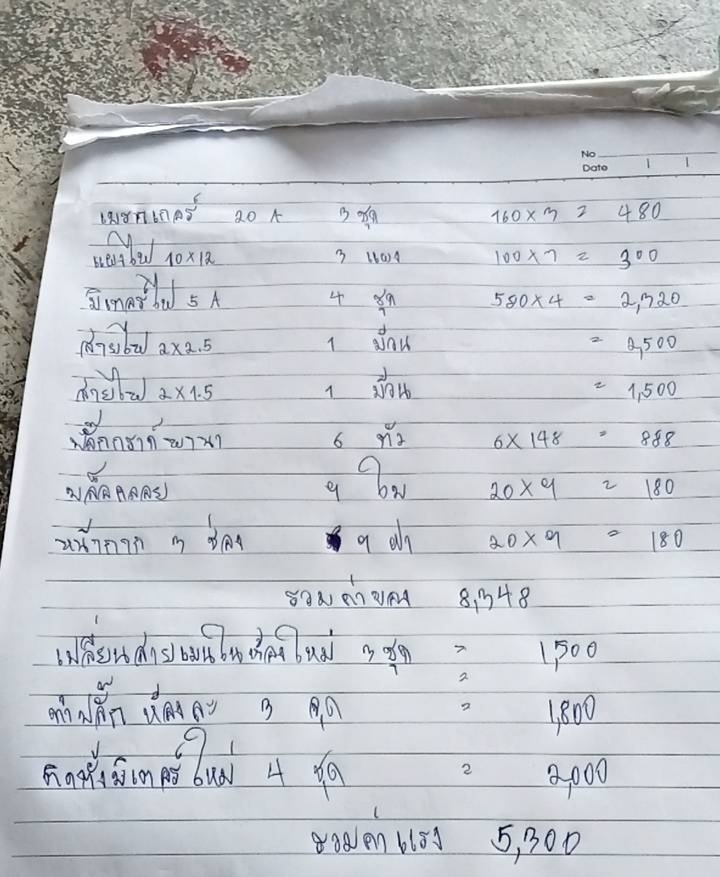 No
Date
เบรกเกอร์ 20 A 3 ชุด 160 x 3 = 480
แผงไฟ 10x12 3 แผง 100 x 3 = 300
มิเตอร์ไฟ 5 A 4 ชุด 580 x 4 = 2,320
สายไฟ 2x2.5 1 ม้วน = 2,500
สายไฟ 2x1.5 1 ม้วน = 1,500
ปลั๊กกราด์พานา 6 ตัว 6 x 148 = 888
บล็อคลอย 9 ใบ 20 x 9 = 180
หน้ากาก 3 ช่อง 9 ฝา 20 x 9 = 180
รวมค่าของ 8,348
เปลี่ยนสายเมนในห้องใหม่ 3 ชุด = 1,500
=
ทำปลั๊ก ห้องละ 3 จุด = 1,800
ติดตั้งมิเตอร์ใหม่ 4 ชุด = 2,000
รวมค่าแรง 5,300